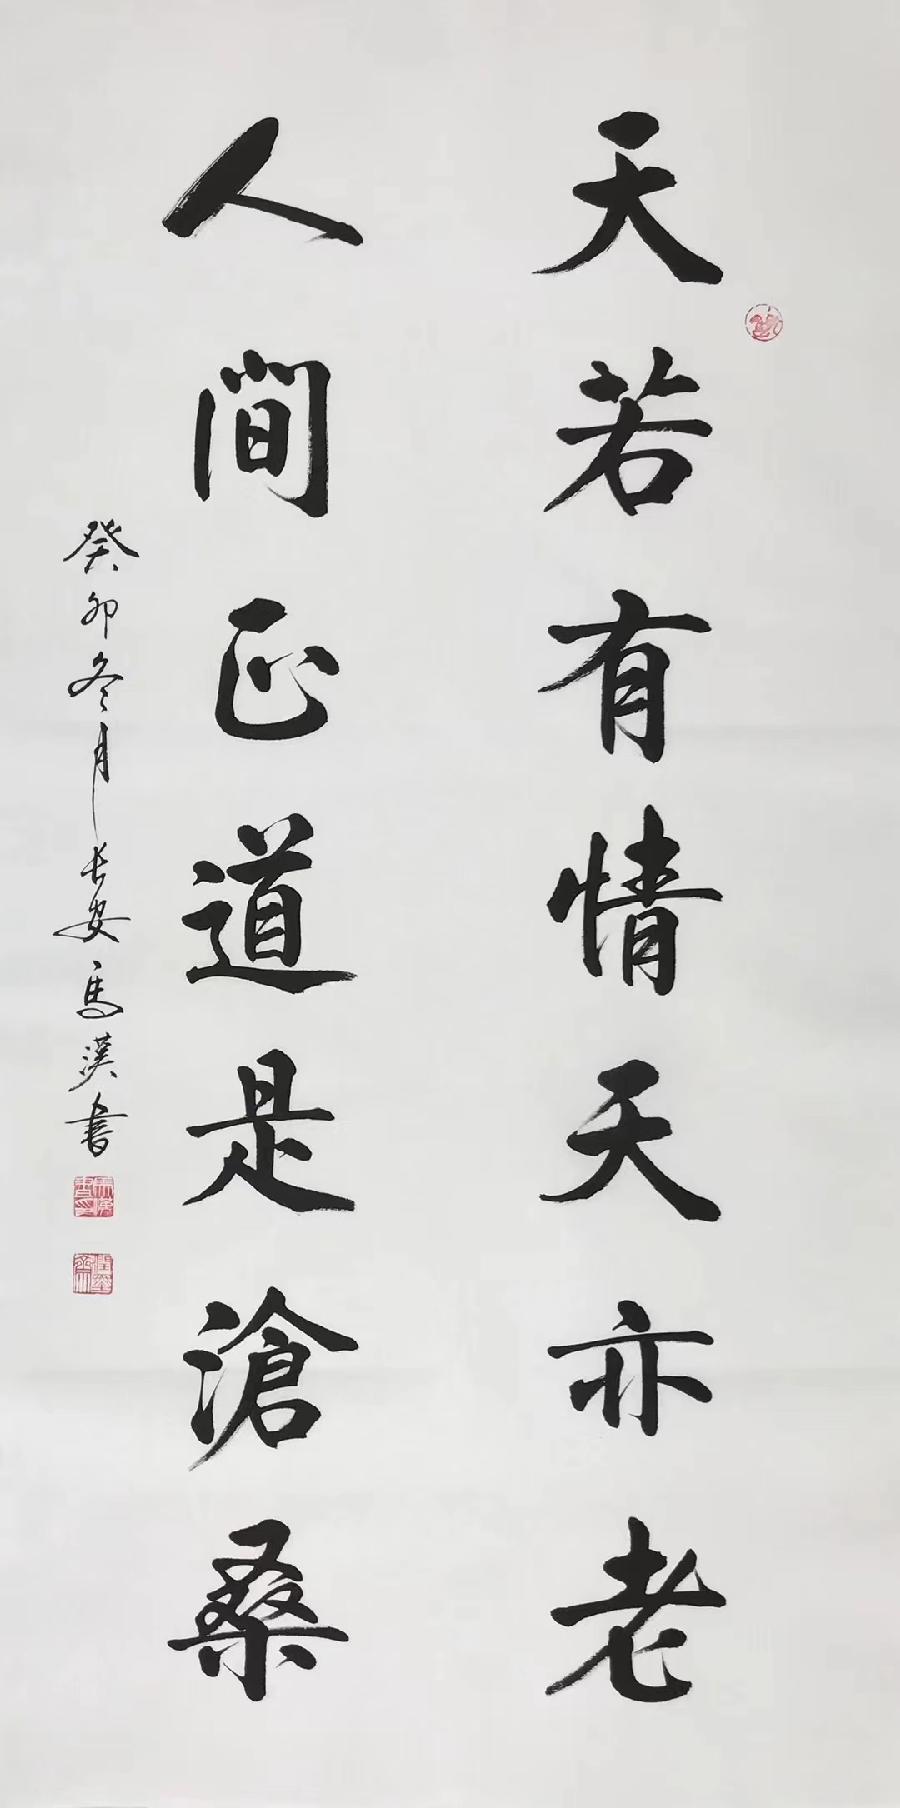 天若有情天亦老
人間正道是滄桑
癸卯冬月長安馬漢書